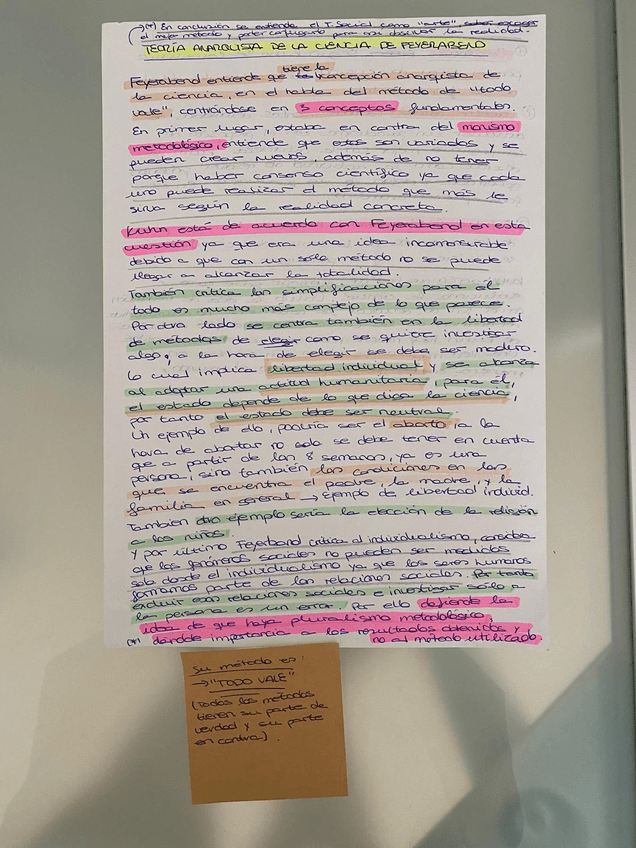 (*) En conclusión se entiende el T. Social como "arte", saber escoger
el mejor método y poder conjugarlo para observar la realidad.
TEORÍA ANARQUISTA DE LA CIENCIA DE FEYERABEND
tiene la
Feyerabend entiende que concepción anarquista de
la ciencia, en él habla del método de "todo
vale", centrándose en 3 conceptos fundamentales.
En primer lugar, estaba en contra del monismo
metodológico, entiende que estos son variados y se
pueden crear nuevos, además de no tener
porque haber consenso científico ya que cada
uno puede realizar el método que más le
sirva según la realidad concreta.
Kuhn está de acuerdo con Feyerabend en esta
cuestión ya que era una idea inconmensurable
debido a que con un solo método no se puede
llegar a alcanzar la totalidad.
También critica las simplificaciones para él
todo es mucho más complejo de lo que parece.
Por otro lado se centra también en la libertad
de métodos de elegir como se quiere investigar
algo, a la hora de elegir se debe ser maduro.
Lo cual implica libertad individual y se abanza
al adoptar una actitud humanitaria, para él,
el estado depende de lo que diga la ciencia,
por tanto el estado debe ser neutral.
Un ejemplo de ello, podría ser el aborto, a la
hora de abortar no solo se debe tener en cuenta
que a partir de las 8 semanas, ya es una
persona, sino también las condiciones en las
que se encuentra el padre, la madre, y la
familia en general → Ejemplo de libertad individ.
También otro ejemplo sería la elección de la religión
a los niños.
Y por último Feyerabend critica al individualismo, considera
que los fenómenos sociales no pueden ser medidos
solo desde el individualismo ya que los seres humanos
formamos parte de las relaciones sociales. Por tanto
excluir esas relaciones sociales e investigar sólo a
la persona es un error. Por ello defiende la
idea de que haya pluralismo metodológico,
(*) dándole importancia a los resultados obtenidos y
no al método utilizado.
Su método es:
→ "TODO VALE"
(Todos los métodos
tienen su parte de
verdad y su parte
en contra).